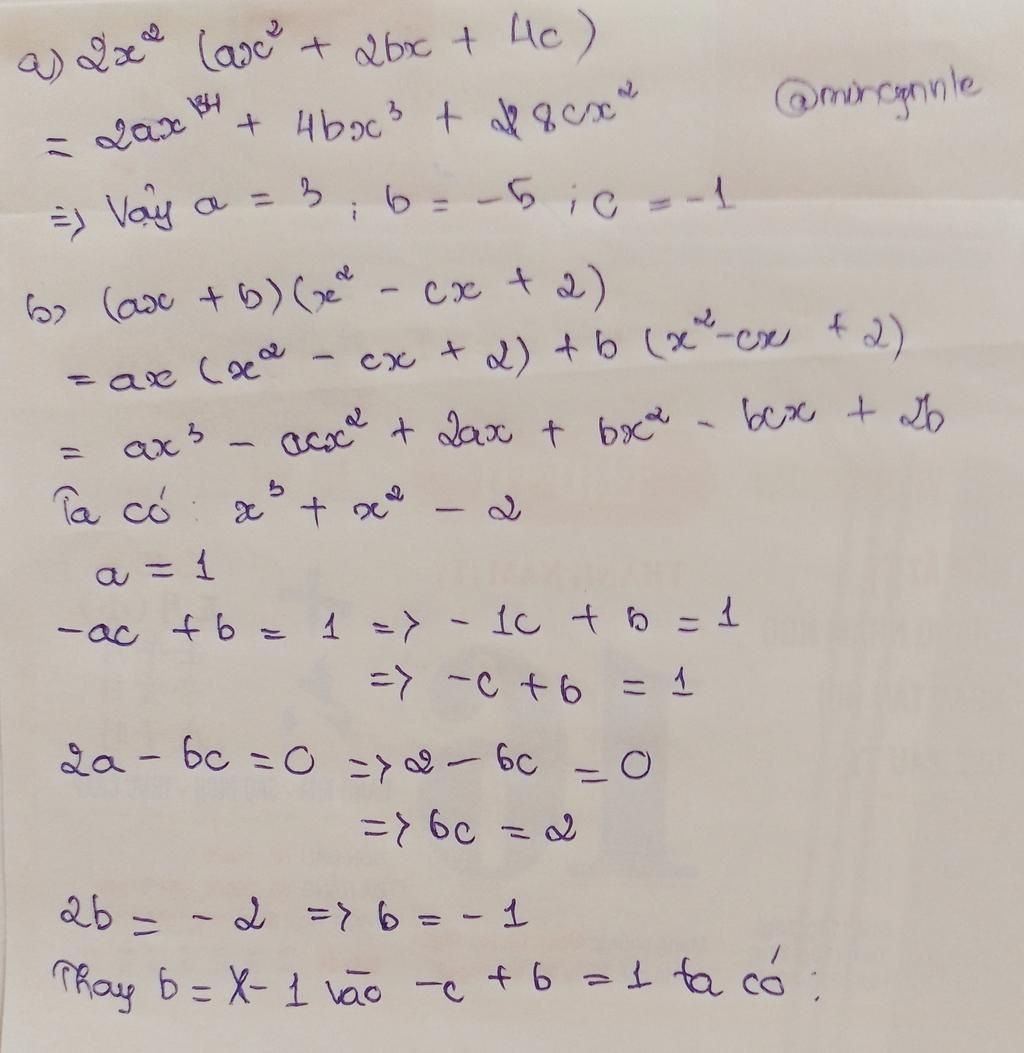 a) 2x² (ax² + 2bx + 4c)
= 2ax⁴ + 4bx³ + 8cx²
=> Vậy a = 3 ; b = -5 ; c = -1
b) (ax + b)(x² - cx + 2)
= ax (x² - cx + 2) + b (x² - cx + 2)
= ax³ - acx² + 2ax + bx² - bcx + 2b
Ta có : x³ + x² - 2
a = 1
-ac + b = 1 => - 1c + b = 1
=> -c + b = 1
2a - bc = 0 => 2 - bc = 0
=> bc = 2
2b = - 2 => b = - 1
Thay b = - 1 vào -c + b = 1 ta có :